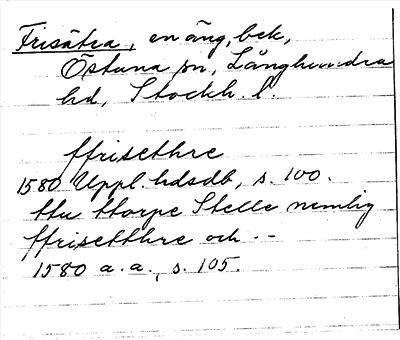 Frisätra, en äng, bek,
Östuna sn, Långhundra
hd, Stockh. l.
ffrisethre
1580 Uppl. hdsdb, s. 100.
ttu ttorpe Stelle nemlig
ffrisetthre och --
1580 a. a., s. 105.